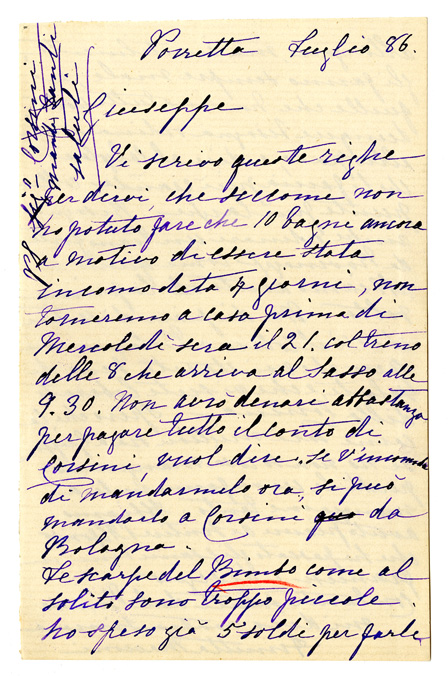 Porretta Luglio 86.
Giuseppe
Vi scrivo queste righe
per dirvi, che siccome non
ho potuto fare che 10 bagni ancora
a motivo di essere stata
incomodata 4 giorni, non
torneremo a casa prima di
Mercoledì sera il 21. col treno
delle 8 che arriva al Sasso alle
9.30. Non avrò denari abbastanza
per pagare tutto il conto di
Corsini vuol dire. se v'incomoda
di mandarmelo ora, si può
mandarlo a Corsini da
Bologna.
Le scarpe del Bimbo come al
solito sono troppo piccole.
ho speso già 5 soldi per farle
Corsini
manda tanti
saluti